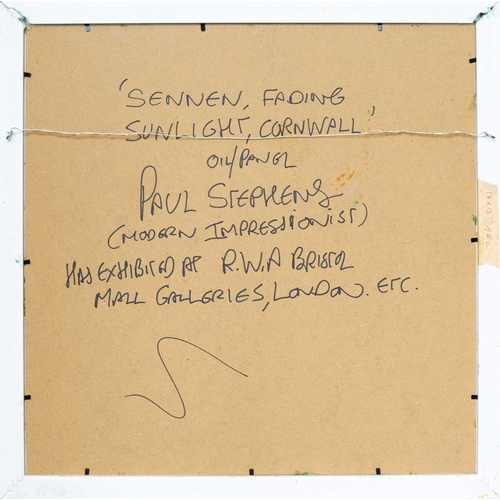 'SENNEN, FADING
SUNLIGHT, CORNWALL'
OIL/PANEL
PAUL STEPHENS
(MODERN IMPRESSIONIST)
HAS EXHIBITED AT R.W.A BRISTOL
MALL GALLERIES, LONDON. ETC.